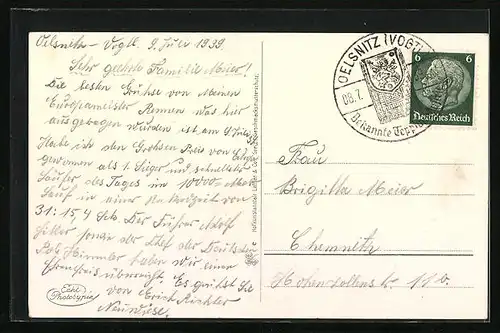 Oelsnitz – Vogtl. 9. Juli 1939
Sehr geehrte Familie Meier!
Die besten Grüsse von Meinen
Europameister Rennen was hier
ausgetragen wurden ist am
Habe ich den Grossen Preis von
gewonnen als 1. Sieger und schnellster
Läufer des Tages im 10000 m
Lauf in einer Rekordzeit von
31:15,4 Sek Der Führer Adolf
Hitler sowie der Chef der Deutschen
Pol. Himmler haben mir einen
Ehrenpreis überreicht. Es grüsst Sie
von Erich Richter
Neuwiese.
Echt
Photokopie
OELSNITZ (VOGTL
08.7.
Bekannte Tepp
6 6
Deutsches Reich
Frau
Brigitta Meier
Chemnitz
Hohenzollernstr.